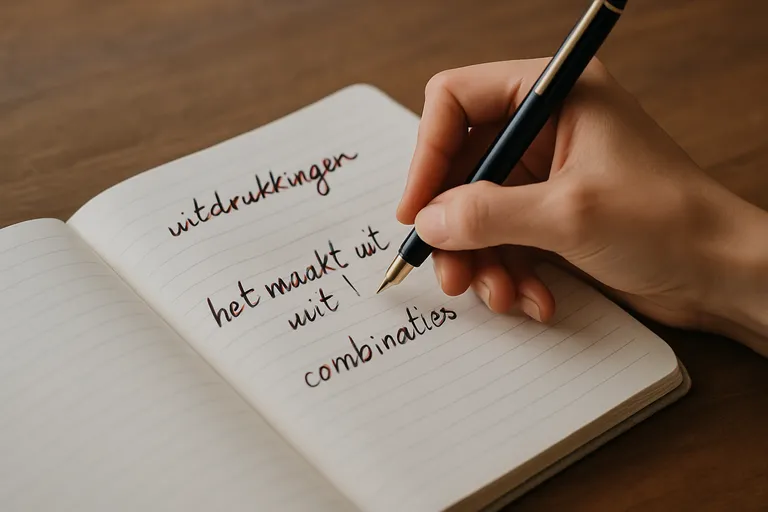 uitdrukkingen
het maakt uit
uit \
combinaties